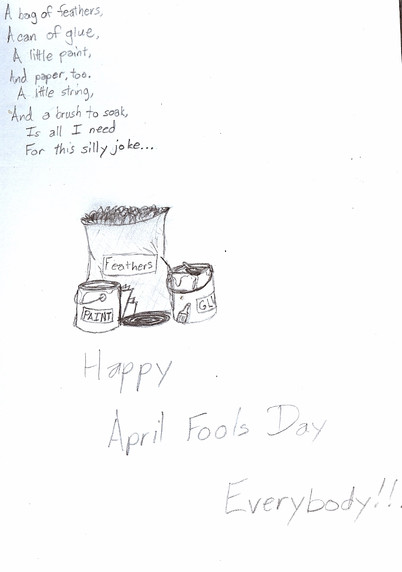 A bag of feathers,
A can of glue,
A little paint,
And paper, too.
A little string,
And a brush to soak,
Is all I need
For this silly joke...
Feathers
PAINT
GL
Happy
April Fools Day
Everybody!!!